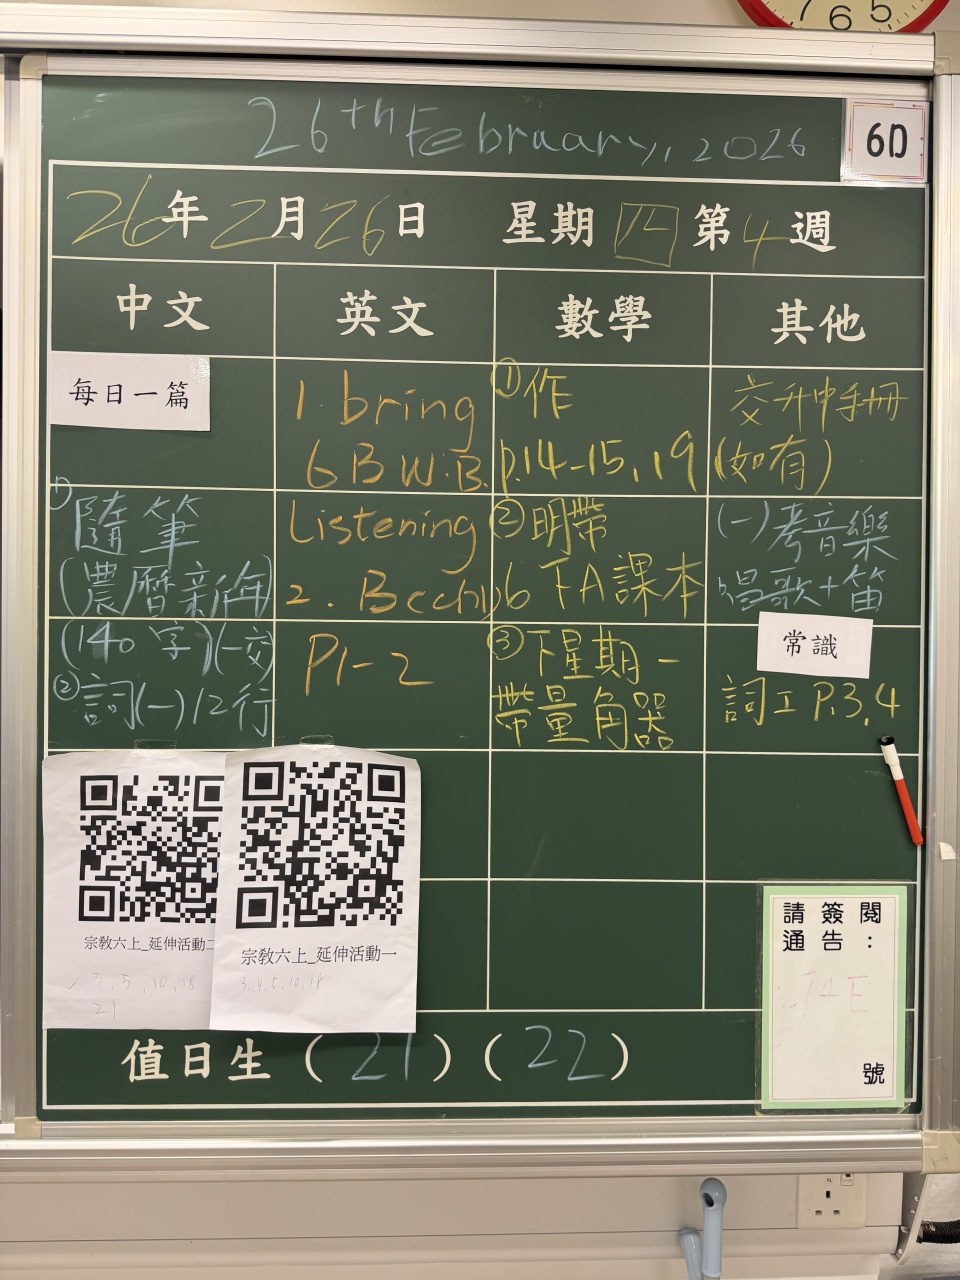 7 6 5
26th February, 2026
6D
26年2月26日 星期四第4週
中文
英文
數學
其他
每日一篇
1) 隨筆
(農曆新年)
(140字)(一交
② 詞(一)12行
1. bring
6B W.B.
Listening
2.
P1-2
① 作
p.14-15, 19
② 明帶
6下A課本
③ 下星期一
帶量角器
交升中手冊
(如有)
(一)考音樂
唱歌+笛
常識
詞工 P.3,4
宗教六上_延伸活動二
5, 10, 18
21
宗教六上_延伸活動一
3, 4, 5, 10, 18
請簽閱
通告:
號
值日生(21)(22)